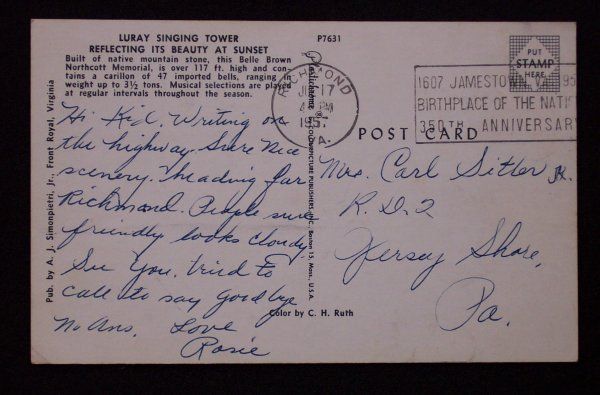 LURAY SINGING TOWER
REFLECTING ITS BEAUTY AT SUNSET
Built of native mountain stone, this Belle Brown
Northcott Memorial, is over 117 ft. high and con-
tains a carillon of 47 imported bells, ranging in
weight up to 3½ tons. Musical selections are played
at regular intervals throughout the season.
P7631
Pub. by A. J. Simonpietri, Jr., Front Royal, Virginia
Hi Kid. Writing on
the highway. Sure nice
scenery. Heading for
Richmond. People sure
friendly looks cloudy.
See You. tried to
call to say goodbye
No Ans. Love
Rosie
Plastichrome ® BY COLOURPICTURE PUBLISHERS, INC., Boston 15, Mass., U.S.A.
RICHMOND
17
PM
1957
VA.
1607 JAMESTOWN, VA. 195
BIRTHPLACE OF THE NATI
350TH ANNIVERSAR
PUT
STAMP
HERE
POST CARD
Mrs. Carl Sitler Jr.
R.D.2
Jersey Shore,
Pa.
Color by C. H. Ruth